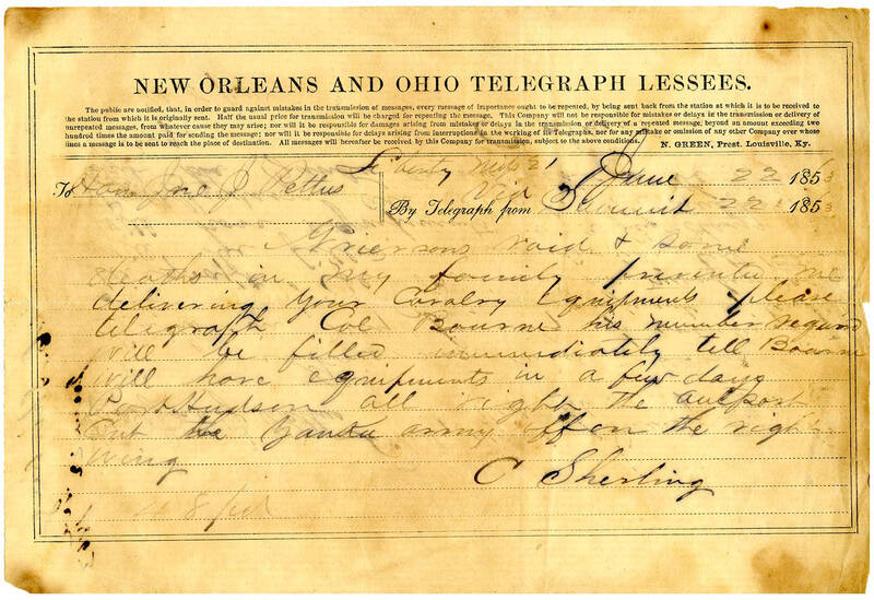 NEW ORLEANS AND OHIO TELEGRAPH LESSEES.
The public are notified, that, in order to guard against mistakes in the transmission of messages, every message of importance ought to be repeated, by being sent back from the station at which it is to be received to
the station from which it is originally sent. Half the usual price for transmission will be charged for repeating the message. This Company will not be responsible for mistakes or delays in the transmission or delivery of
unrepeated messages, from whatever cause they may arise; nor will it be responsible for damages arising from mistakes or delays in the transmission or delivery of a repeated message, beyond an amount exceeding two
hundred times the amount paid for sending the message; nor will it be responsible for delays arising from interruptions in the working of its Telegraphs, nor for any mistake or omission of any other Company over whose
lines a message is to be sent to reach the place of destination. All messages will hereafter be received by this Company for transmission, subject to the above conditions. N. GREEN, Prest. Louisville, Ky.
Liberty Miss 21 June 22 1863
To Hon Jno J Pettus Via
By Telegraph from Summit 22 1853
Griersons raid & some
deaths in my family prevented me
delivering your Cavalry Equipments please
telegraph Col Bourne his number
will be filled immediately tell Bourne
will have equipments in a few days
Port Hudson all right the
Cut the Yankee army off on the right
wing
C Sherling